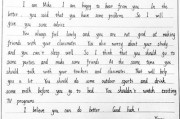 I am Mike. I am happy to hear from you. In the
letter, you said that you have some problems. So I will
give you some advice.
You always feel lonely and you are not good at making
friends with your classmates. You also worry about your study
and you can't sleep well. So I think that you should go to
some parties and make some friends. At the same time you
should talk with your teachers and classmates. That will help
you a lot. You should do some outdoor sports and drink
some milk before you go to bed. You shouldn't watch exciting
TV programs.
I believe you can do better. Good luck!